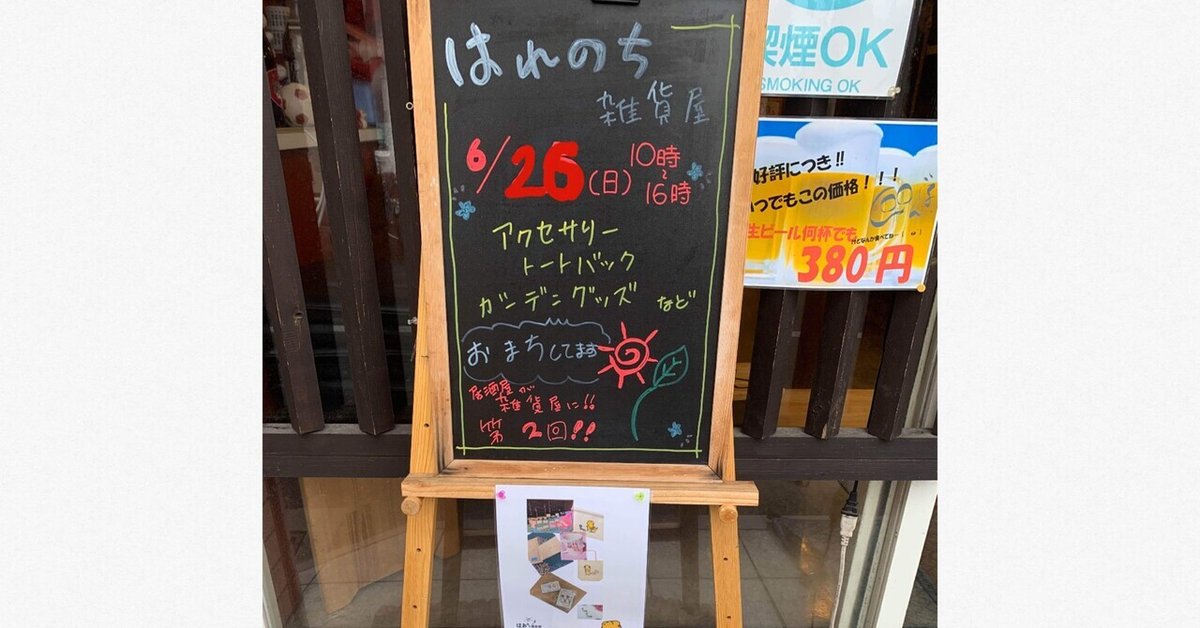 はれのち
雑貨屋
6/26(日) 10時
~
16時
アクセサリー
トートバック
ガンデングッズ など
おまちしてます
居酒屋が
雑貨屋に!!
第2回!!
喫煙OK
SMOKING OK
好評につき!!
いつでもこの価格!!!
生ビール何杯でも
380円